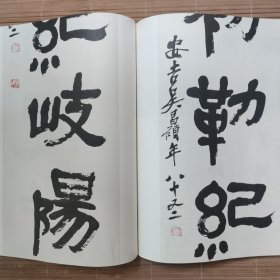 勒紀
安吉吳昌碩年八十又二
紀岐陽